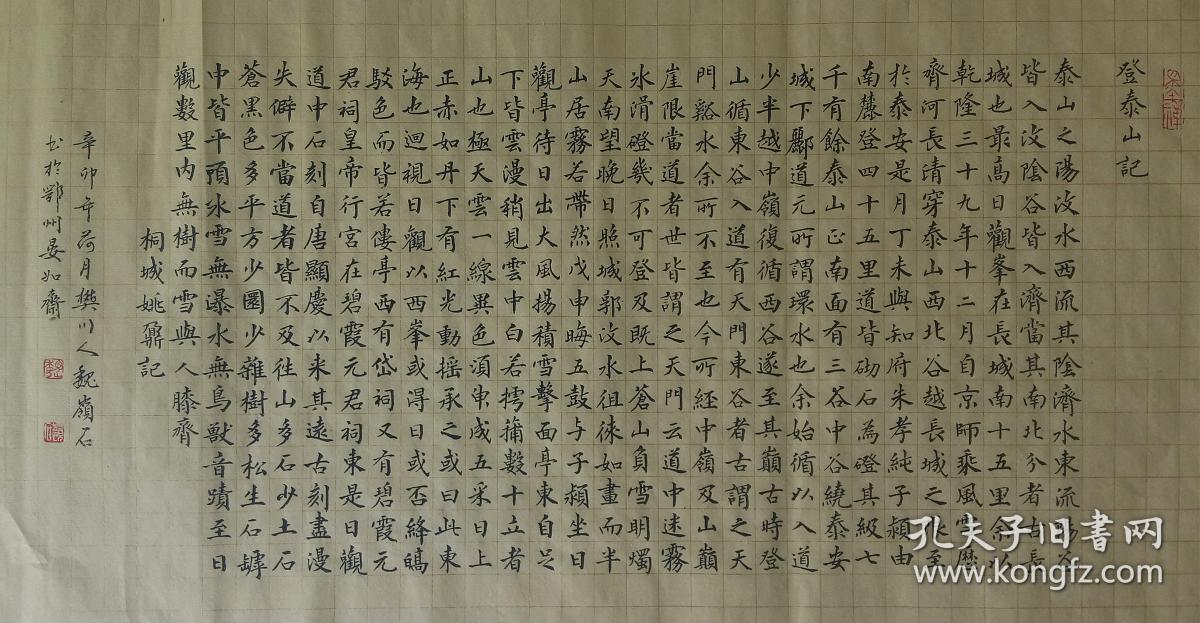 登泰山記
泰山之陽汶水西流其陰濟水東流陽谷
皆入汶陰谷皆入濟當其南北分者古長
城也最高日觀峯在長城南十五里余以
乾隆三十九年十二月自京師乘風雪歷
齊河長清穿泰山西北谷越長城之限至
於泰安是月丁未與知府朱孝純子潁由
南麓登四十五里道皆砌石為磴其級七
千有餘泰山正南面有三谷中谷繞泰安
城下酈道元所謂環水也余始循以入道
少半越中嶺復循西谷遂至其巔古時登
山循東谷入道有天門東谷者古謂之天
門谿水余所不至也今所経中嶺及山巔
崖限當道者世皆謂之天門云道中迷霧
冰滑磴幾不可登及既上蒼山負雪明燭
天南望晚日照城郭汶水徂徠如畫而半
山居霧若帶然戊申晦五鼓与子潁坐日
觀亭待日出大風揚積雪擊面亭東自足
下皆雲漫稍見雲中白若樗蒱數十立者
山也極天雲一線異色須臾成五采日上
正赤如丹下有紅光動摇承之或曰此東
海也迴視日觀以西峯或得日或否絳皜
駁色而皆若僂亭西有岱祠又有碧霞元
君祠皇帝行宮在碧霞元君祠東是日觀
道中石刻自唐顯慶以来其遠古刻盡漫
失僻不當道者皆不及往山多石少土石
蒼黑色多平方少圜少雜樹多松生石罅
中皆平頂冰雪無瀑水無鳥獸音蹟至日
觀數里内無樹而雪與人膝齊
桐城姚鼐記
辛卯年荷月樊川人魏嶺石
书於鄂州晏如齋
孔夫子旧书网
www.kongfz.com